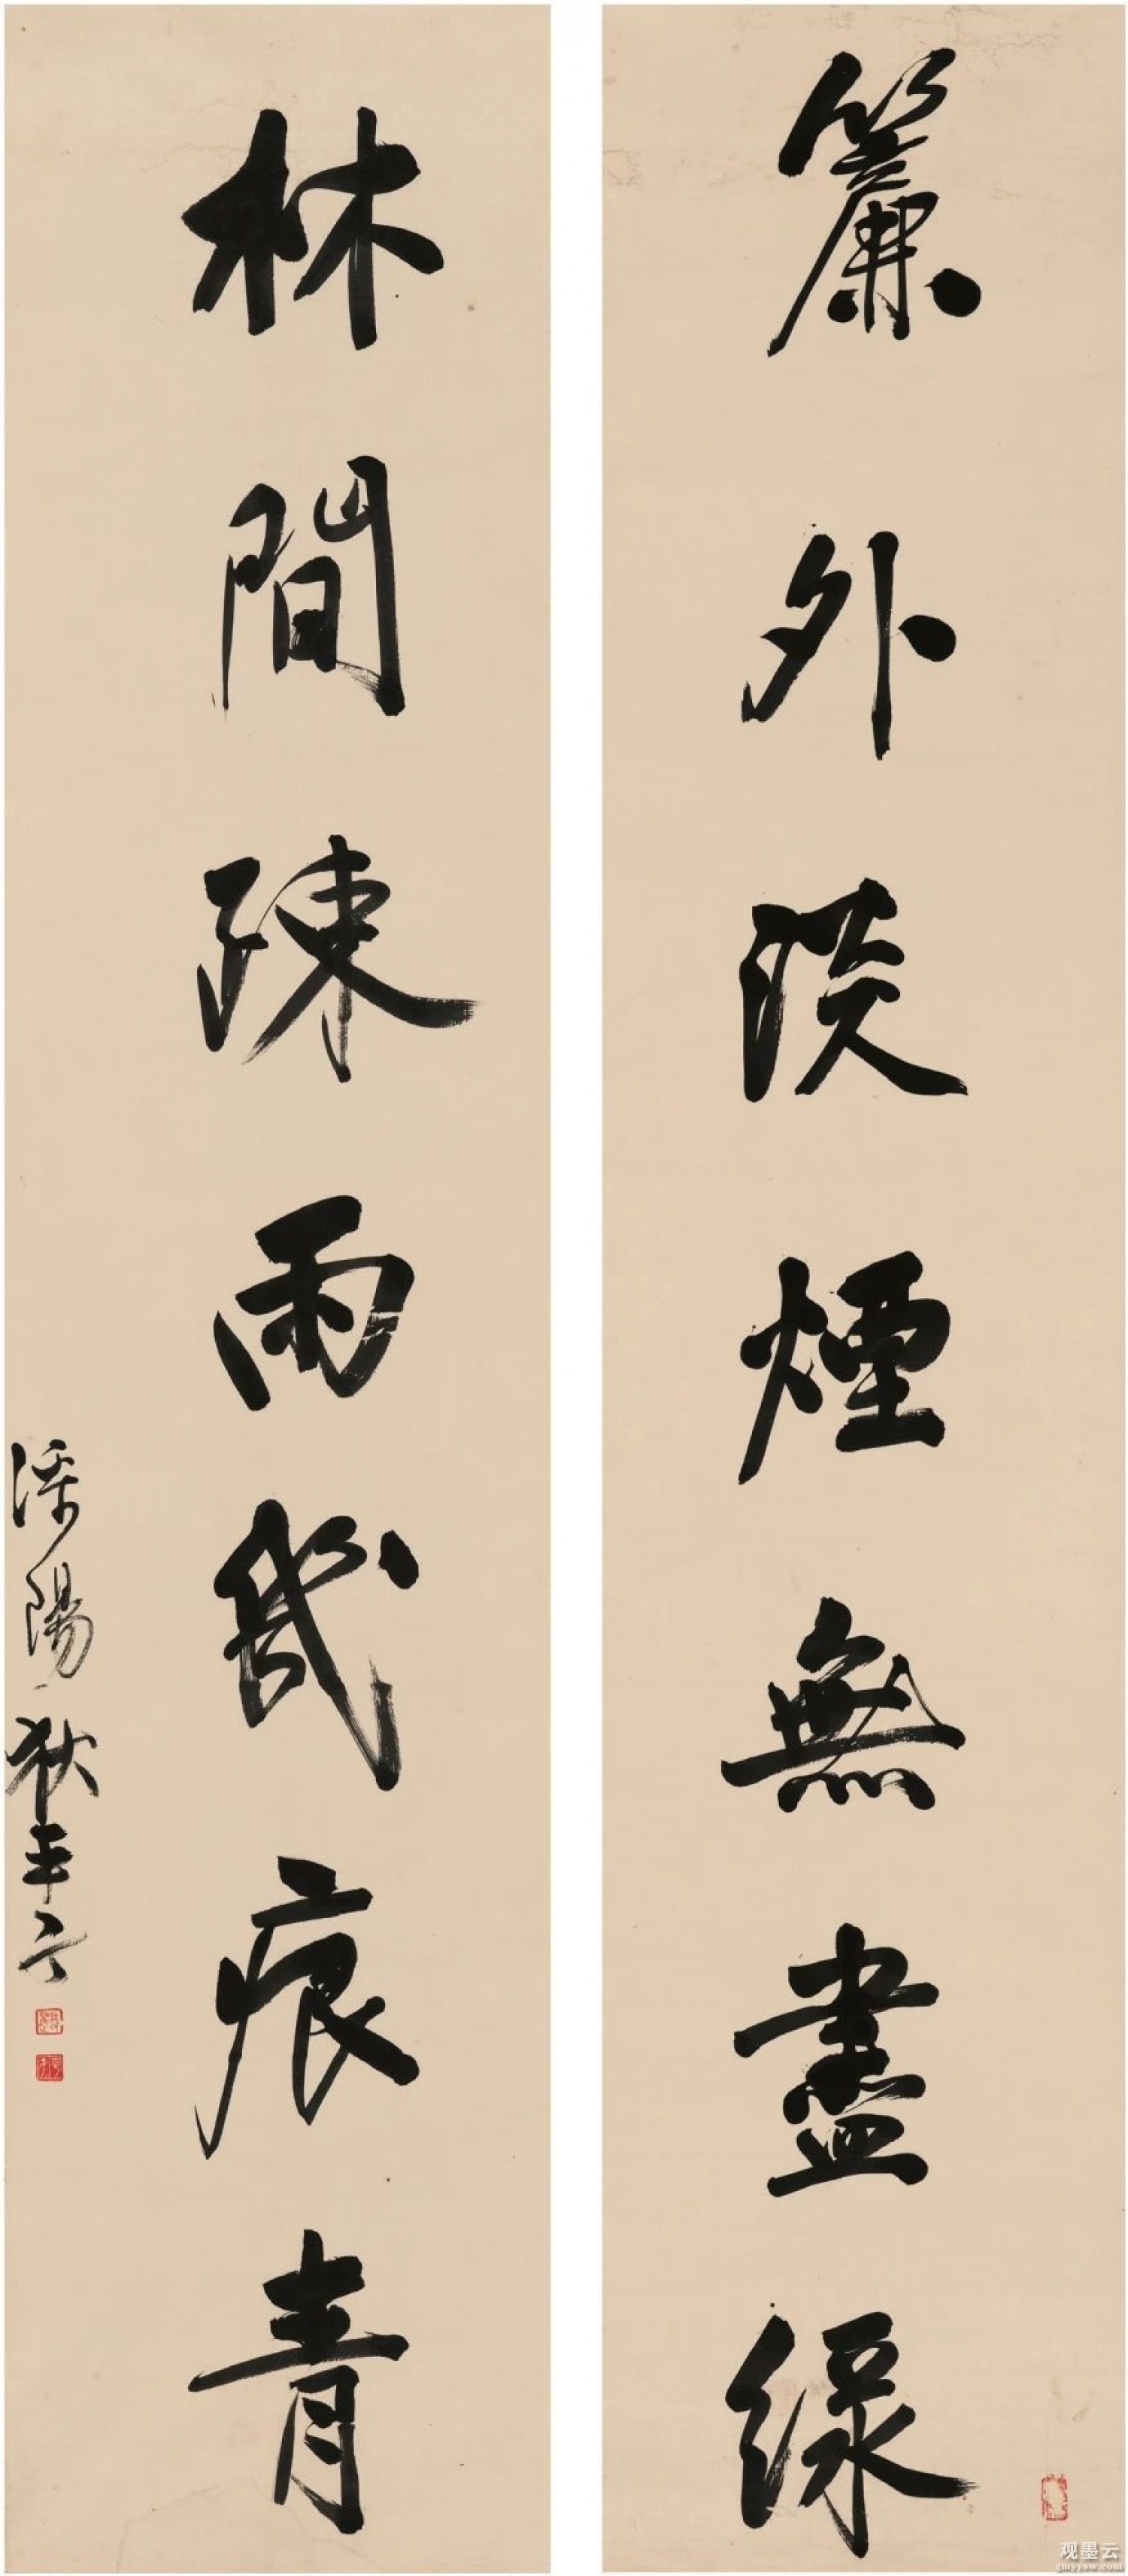 簾外淡煙無盡綠
林間疎雨幾痕青
溧陽狄平子
观墨云
gmyysw.com